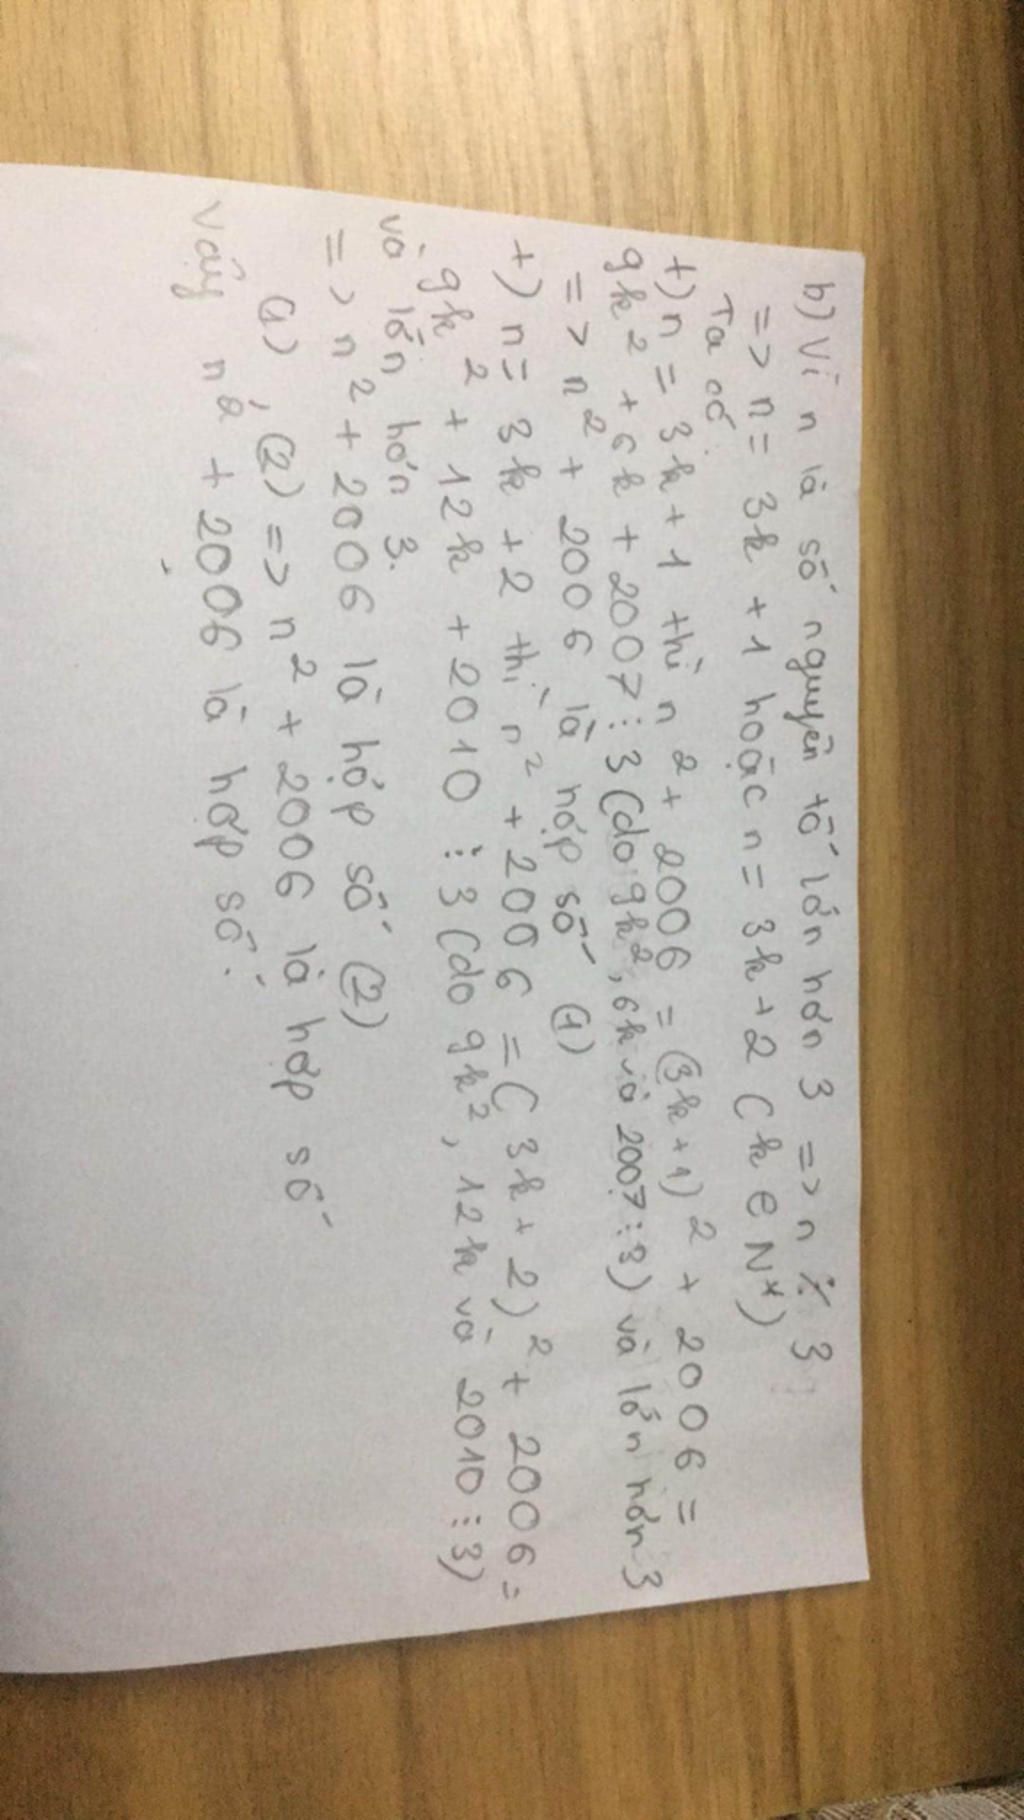 b) Vì n là số nguyên tố lớn hơn 3 => n ⋮̸ 3
=> n = 3k + 1 hoặc n = 3k + 2 (k ∈ N*)
Ta có:
+) n = 3k + 1 thì n² + 2006 = (3k + 1)² + 2006 =
9k² + 6k + 2007 ⋮ 3 (do 9k², 6k và 2007 ⋮ 3) và lớn hơn 3
=> n² + 2006 là hợp số (1)
+) n = 3k + 2 thì n² + 2006 = (3k + 2)² + 2006 =
9k² + 12k + 2010 ⋮ 3 (do 9k², 12k và 2010 ⋮ 3)
và lớn hơn 3.
=> n² + 2006 là hợp số (2)
(1), (2) => n² + 2006 là hợp số
Vậy n² + 2006 là hợp số.